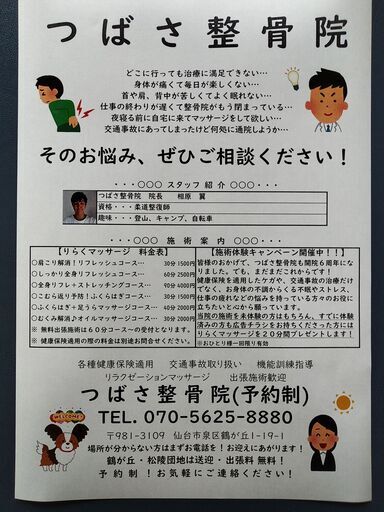 つばさ整骨院
どこに行っても治療に満足できない…
身体が痛くて毎日が楽しくない…
首や肩、背中が苦しくてよく眠れない…
仕事の終わりが遅くて整骨院がもう閉まっている…
夜寝る前に自宅に来てマッサージをして欲しい…
交通事故にあってしまったけど何処に通院しようか…
そのお悩み、ぜひご相談ください！
・・・〇〇〇 スタッフ紹介 〇〇〇・・・
つばさ整骨院 院長 相原 翼
資格・・・柔道整復師
趣味・・・登山、キャンプ、自転車
・・・〇〇〇 施術案内 〇〇〇・・・
【りらくマッサージ 料金表】
○肩こり解消！リフレッシュコース… 30分1500円
○しっかり全身リフレッシュコース… 60分2500円
○全身リフレ＋ストレッチングコース… 90分4000円
○こむら返り予防！ふくらはぎコース… 30分1500円
○ふくらはぎ＋足うらマッサージコース… 40分2000円
○むくみ解消♪オイルマッサージコース… 30分2000円
※ 無料出張施術は６０分コース～の受付となります。
※ 健康保険適用の際の料金は別途お問合せください。
【施術体験キャンペーン開催中！！】
皆様のおかげで、つばさ整骨院も開院６周年になり
ました。でも、まだまだこれからです！
健康保険を適用したケガや、交通事故の治療だけ
でなく、お身体の不調からくる不眠やストレス、
仕事の疲れなどの悩みを持っている方々のお役に
立ちたいと心から願っています。
当院の施術を未体験の方はもちろん、すでに体験
済みの方も広告チラシをお持ちくださった方には
りらくマッサージを２０分間プレゼントします！
※おひとり様一回限り有効
各種健康保険適用 交通事故取り扱い 機能訓練指導
リラクゼーションマッサージ 出張施術歓迎
つばさ整骨院(予約制)
TEL. 070-5625-8880
〒981-3109 仙台市泉区鶴が丘1-19-1
場所が分からない方はまずお電話を！お迎えにあがります！
鶴が丘・松陵団地は送迎・出張料 無料！
予約制！お気軽にご連絡ください！
WELCOME